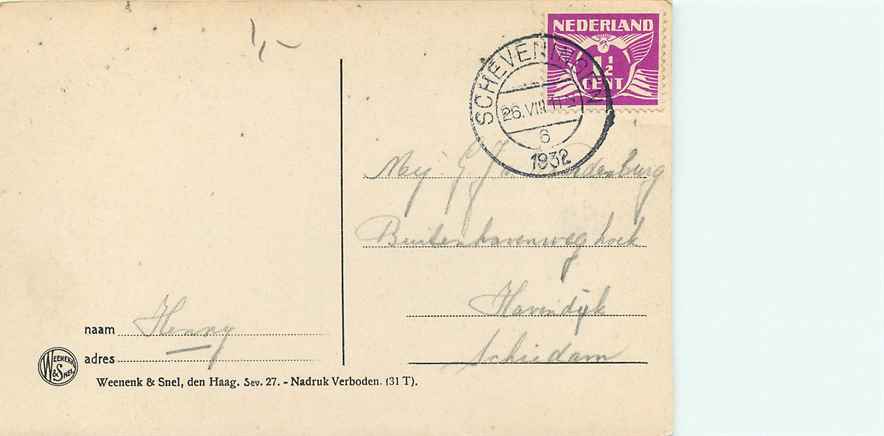 1,-
NEDERLAND
1½
CENT
SCHEVENINGEN
26.VIII
6
1932
Mej. G. J.
Buitenhavenweg hoek
Havendijk
Schiedam
naam Henny
adres
WEENENK & SNEL
Weenenk & Snel, den Haag. Sev. 27. - Nadruk Verboden. (31 T).